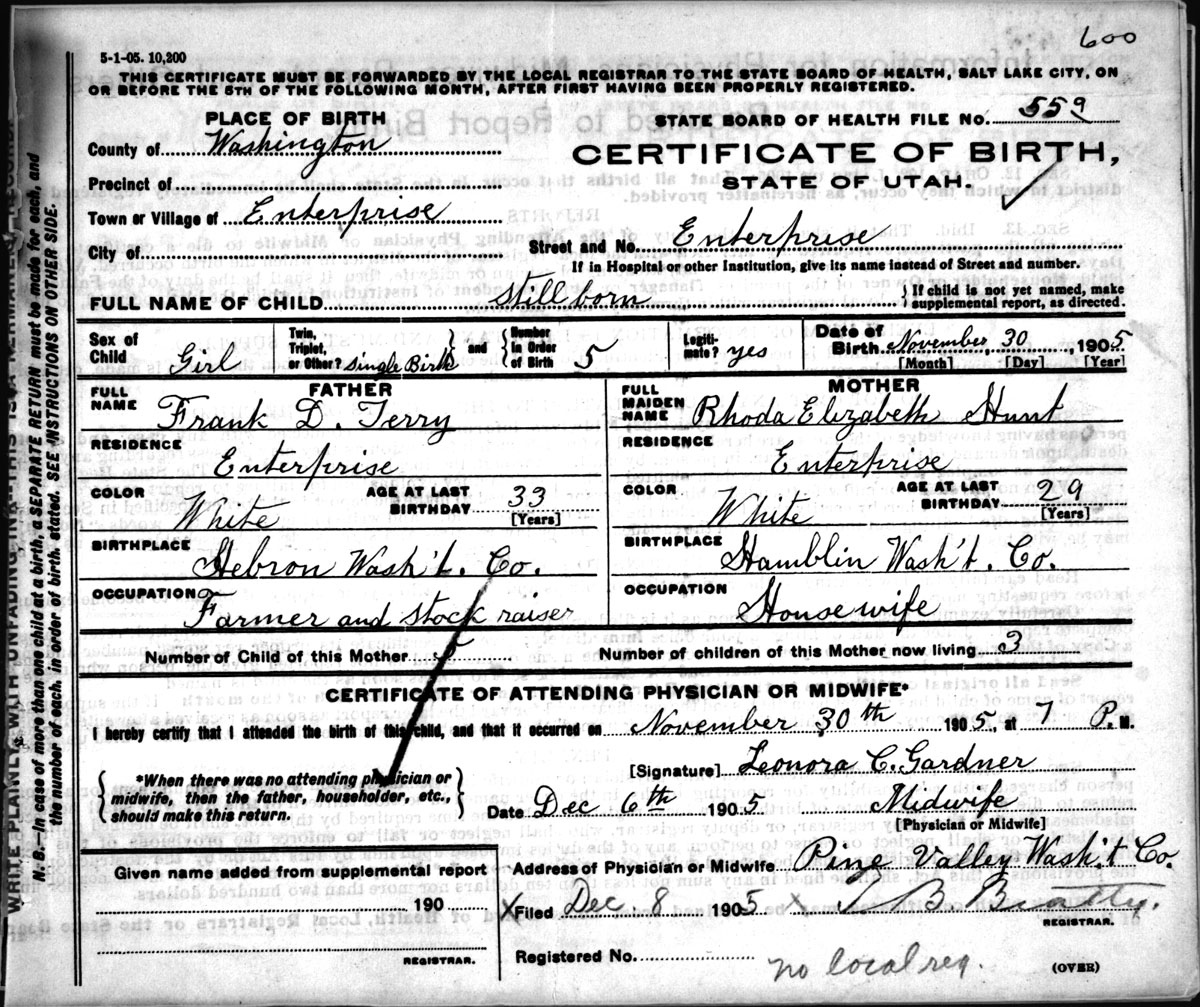 600
5-1-05. 10,200
THIS CERTIFICATE MUST BE FORWARDED BY THE LOCAL REGISTRAR TO THE STATE BOARD OF HEALTH, SALT LAKE CITY, ON
OR BEFORE THE 5TH OF THE FOLLOWING MONTH, AFTER FIRST HAVING BEEN PROPERLY REGISTERED.
PLACE OF BIRTH
STATE BOARD OF HEALTH FILE NO. 559
County of Washington
CERTIFICATE OF BIRTH,
STATE OF UTAH.
Precinct of
Town or Village of Enterprise
City of
Street and No. Enterprise
If in Hospital or other Institution, give its name instead of Street and number.
FULL NAME OF CHILD Still born } If child is not yet named, make
supplemental report, as directed.
Sex of Child Girl
Twin, Triplet, or Other? Single Birth } and { Number in Order of Birth 5
Legitimate? yes
Date of Birth November, 30, 1905
[Month] [Day] [Year]
FATHER
FULL NAME Frank D. Terry
RESIDENCE Enterprise
COLOR White AGE AT LAST BIRTHDAY 33
[Years]
BIRTHPLACE Hebron Wash't. Co.
OCCUPATION Farmer and stock raiser
MOTHER
FULL MAIDEN NAME Rhoda Elizabeth Hunt
RESIDENCE Enterprise
COLOR White AGE AT LAST BIRTHDAY 29
[Years]
BIRTHPLACE Hamblin Wash't. Co.
OCCUPATION House wife
Number of Child of this Mother 5 Number of children of this Mother now living 3
CERTIFICATE OF ATTENDING PHYSICIAN OR MIDWIFE*
I hereby certify that I attended the birth of this child, and that it occurred on November 30th 1905, at 7 P. M.
{ *When there was no attending physician or
midwife, then the father, householder, etc.,
should make this return. }
[Signature] Leonora C. Gardner
Date Dec 6th 1905 Midwife
[Physician or Midwife]
Given name added from supplemental report
190
REGISTRAR.
Address of Physician or Midwife Pine Valley Wash't Co.
X Filed Dec. 8 1905 X T B Beatty.
REGISTRAR.
Registered No.
no local reg.
(OVER)
WRITE PLAINLY WITH UNFADING INK--THIS IS A PERMANENT RECORD
N. B.--In case of more than one child at a birth, a SEPARATE RETURN must be made for each, and
the number of each, in order of birth, stated. SEE INSTRUCTIONS ON OTHER SIDE.